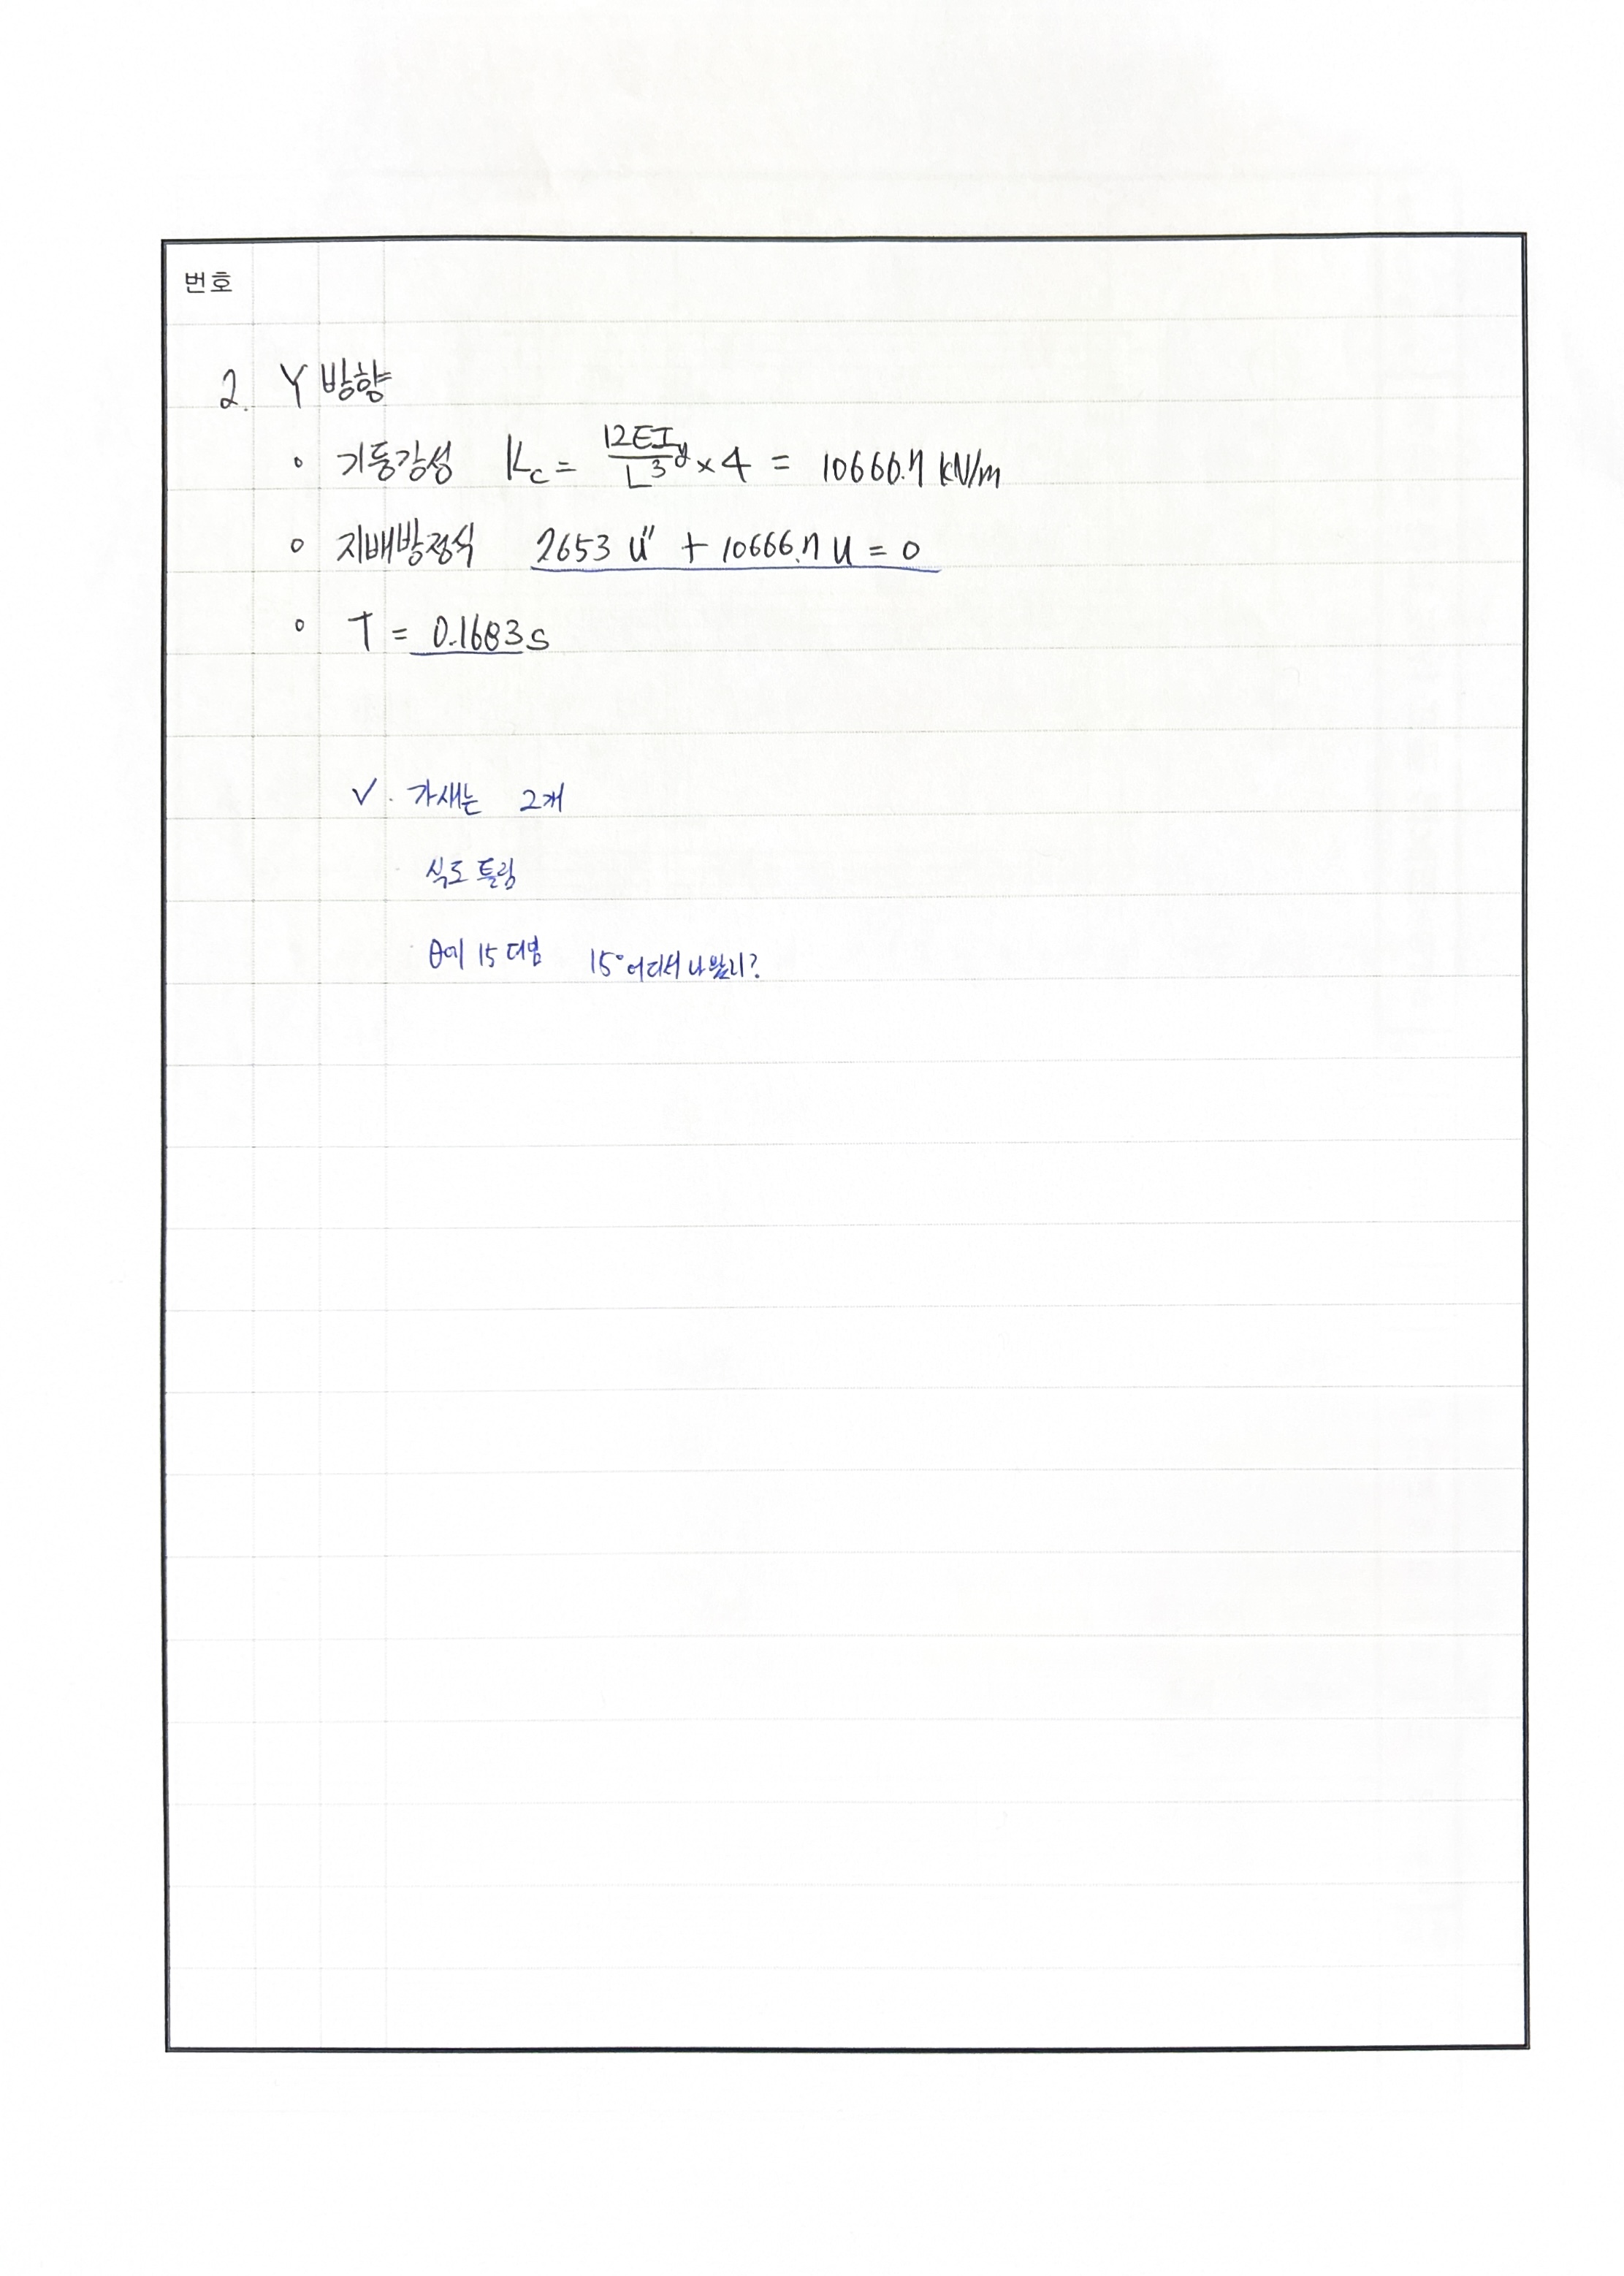 번호
2. Y 방향
∘ 기둥강성 Kc = 12EIy/L³ × 4 = 10666.7 kN/m
∘ 지배방정식 2653 u'' + 10666.7 u = 0
∘ T = 0.1683s
✓ · 가새는 2개
· 식도 틀림
· θ에 15 더넘 15° 어디서 나왔니?